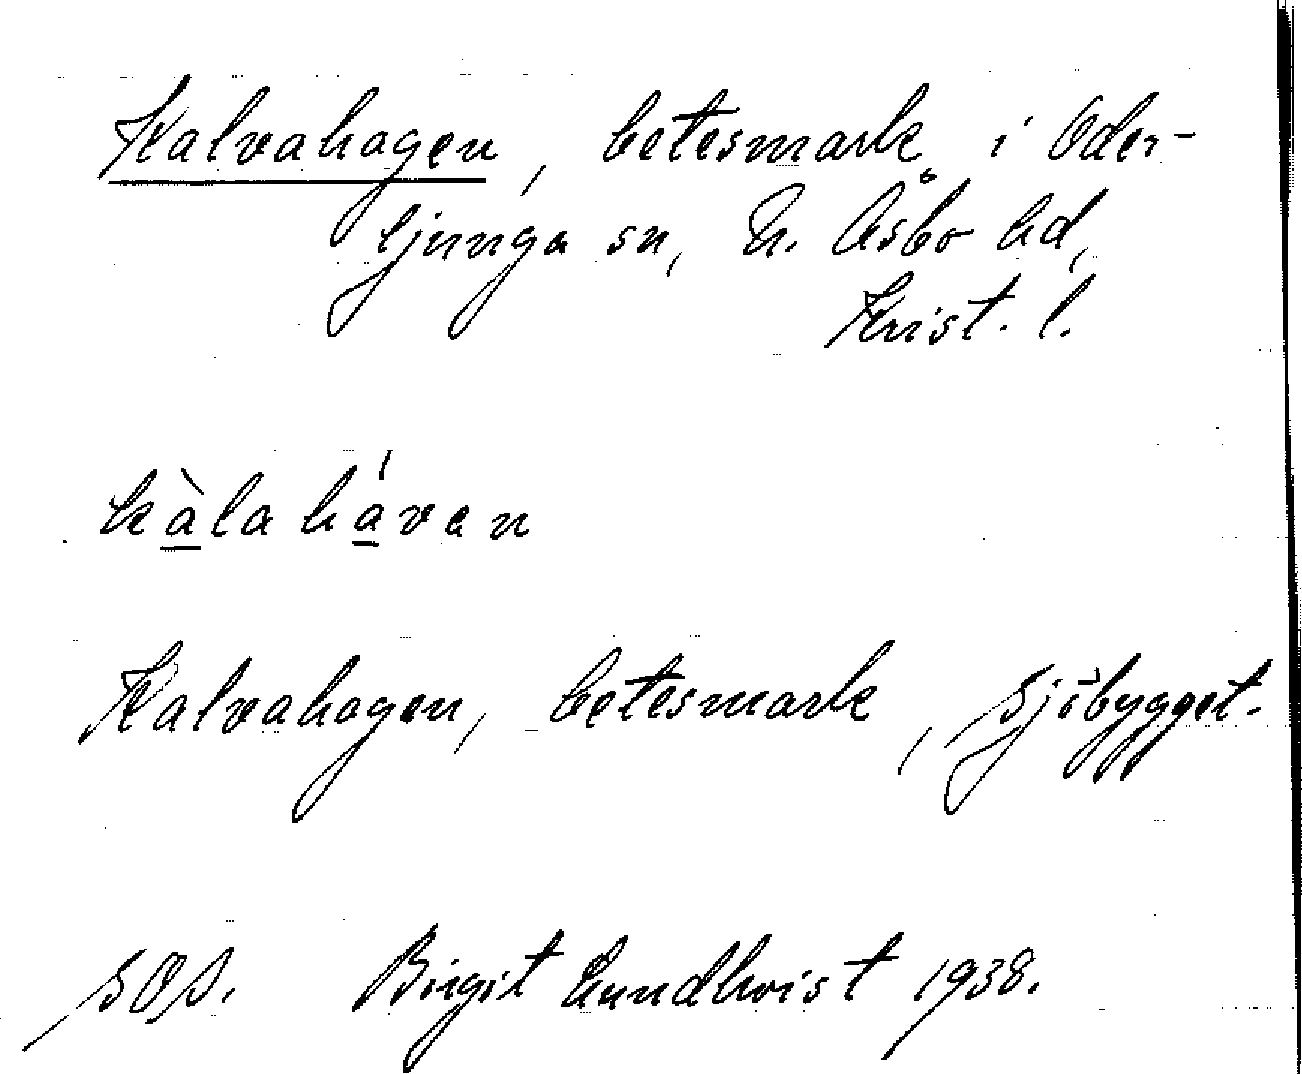 Kalvahagen, betesmark i Oder-
ljunga sn, N. Åsbo hd,
Krist. l.
kàlaháven
Kalvahagen, betesmark, Sjöbygget.
SOS. Birgit Lundkvist 1938.